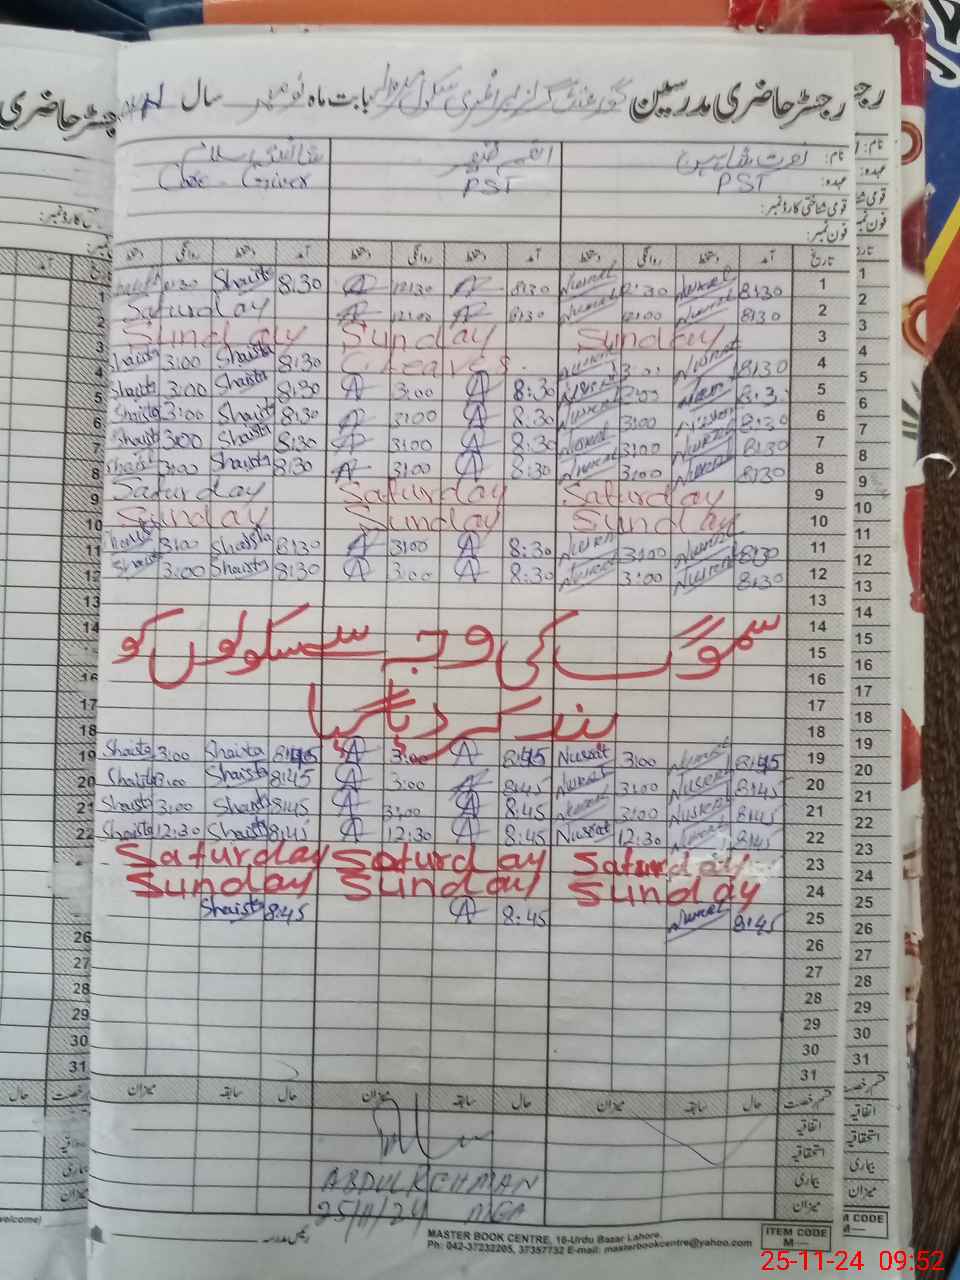 رجسٹر حاضری مدرسین گورنمنٹ گرلز پرائمری سکول بابت ماہ نومبر سال
نام: نصرت شاہین
عہدہ: PST PST Care-Giver
قومی شناختی کارڈ نمبر:
فون نمبر:
تاریخ آمد دستخط روانگی دستخط آمد دستخط روانگی دستخط آمد دستخط روانگی دستخط
1 8:30 Nusrat 12:30 Nusrat 8:30 A 12:30 A 8:30 Shaista 12:30
2 8:30 Nusrat 12:00 Nusrat 8:30 A 12:00 A Saturday
3 Sunday Sunday Sunday
4 8:30 Nusrat 3:00 C leaves. 8:30 Shaista 3:00 Shaista
5 8:30 3:00 Nusrat 8:30 A 3:00 A 8:30 Shaista 3:00 Shaista
6 8:30 3:00 Nusrat 8:30 A 3:00 A 8:30 Shaista 3:00 Shaista
7 8:30 Nusrat 3:00 Nusrat 8:30 A 3:00 A 8:30 Shaista 3:00 Shaista
8 8:30 Nusrat 3:00 Nusrat 8:30 A 3:00 A 8:30 Shaista 3:00 Shaista
9 Saturday Saturday Saturday
10 Sunday Sunday Sunday
11 8:30 Nusrat 3:00 Nusrat 8:30 A 3:00 A 8:30 Shaista 3:00
12 8:30 Nusrat 3:00 Nusrat 8:30 A 3:00 A 8:30 Shaista 3:00 Shaista
13
14
15 سموگ کی وجہ سے سکولوں کو
16
17
18 بند کر دیا گیا
19 8:45 Nusrat 3:00 Nusrat 8:45 A 3:00 A 8:45 Shaista 3:00 Shaista
20 8:45 Nusrat 3:00 Nusrat 8:45 A 3:00 A 8:45 Shaista 3:00 Shaista
21 8:45 Nusrat 3:00 Nusrat 8:45 A 3:00 A 8:45 Shaista 3:00 Shaista
22 8:45 Nusrat 12:30 Nusrat 8:45 A 12:30 A 8:45 Shaista 12:30 Shaista
23 Saturday Saturday Saturday
24 Sunday Sunday Sunday
25 8:45 Nusrat 8:45 A 8:45 Shaista
26
27
28
29
30
31
قسم رخصت حال سابقہ میزان حال سابقہ میزان حال سابقہ میزان
اتفاقیہ
استحقاقیہ
بیماری
میزان
ABDUL REHMAN
25/11/24 MEA
رئیس مدرسہ
MASTER BOOK CENTRE, 16-Urdu Bazar Lahore.
Ph: 042-37232205, 37357732 E-mail: masterbookcentre@yahoo.com
ITEM CODE
M—
25-11-24 09:52